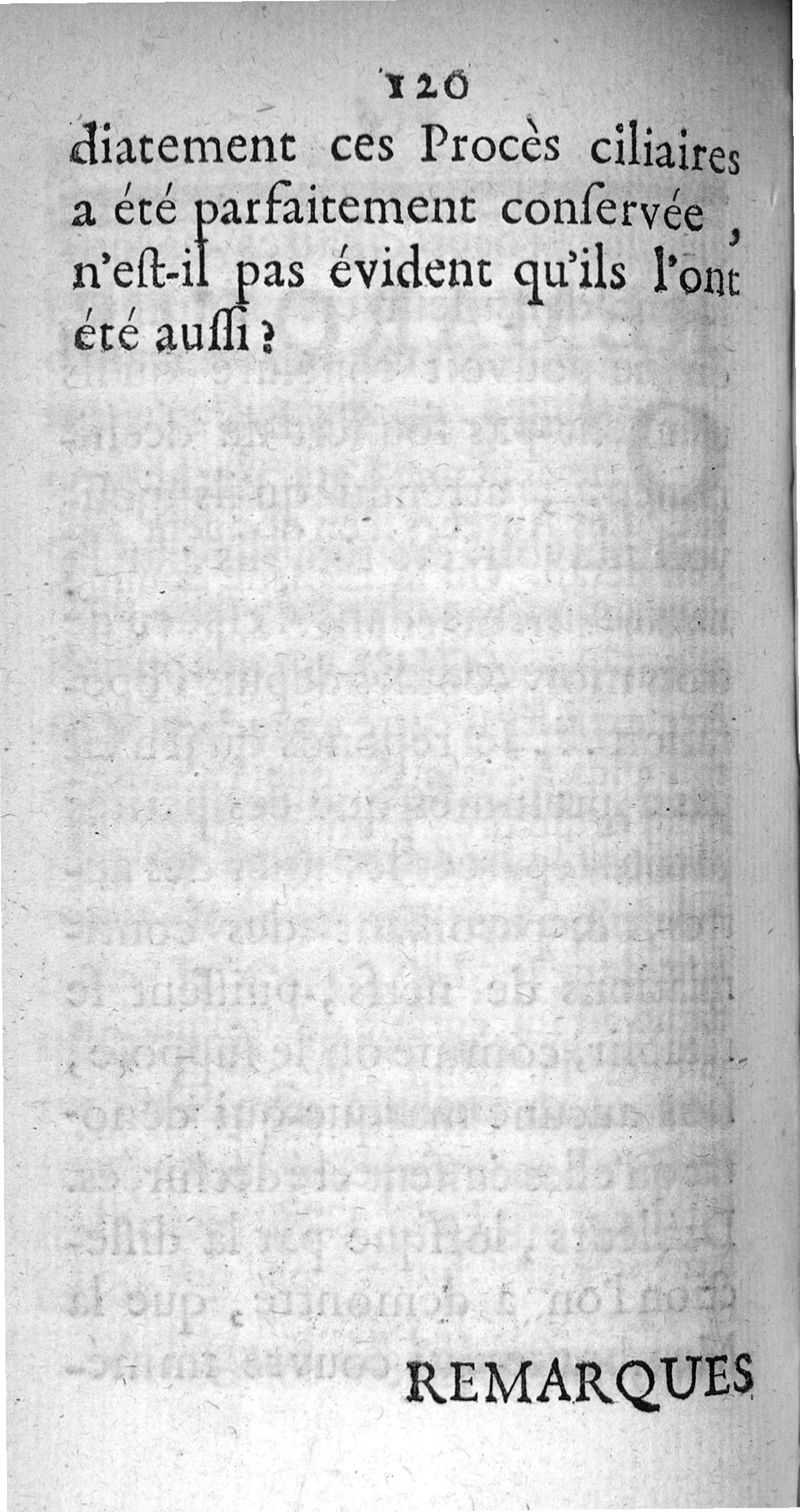 120
diatement ces Procès ciliaires
a été parfaitement conſervée ,
n'eſt-il pas évident qu'ils l'ont
été auſſi ?
REMARQUES